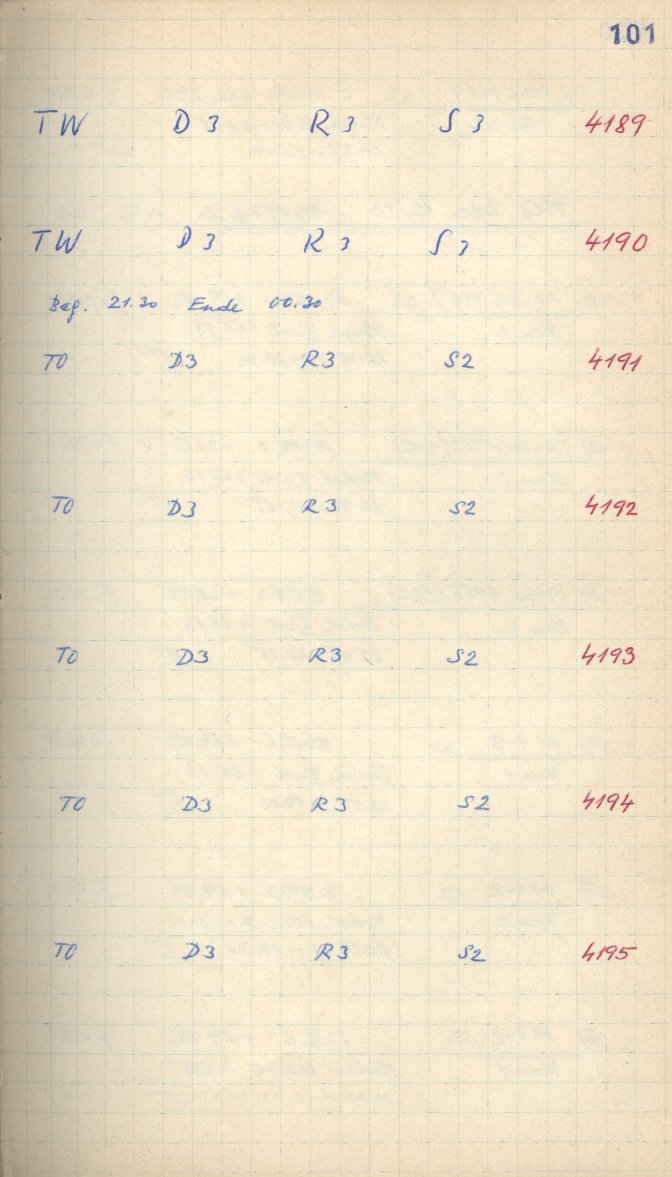 101
TW D3 R3 S3 4189
TW D3 R3 S3 4190
Beg. 21.30 Ende 00.30
TO D3 R3 S2 4191
TO D3 R3 S2 4192
TO D3 R3 S2 4193
TO D3 R3 S2 4194
TO D3 R3 S2 4195